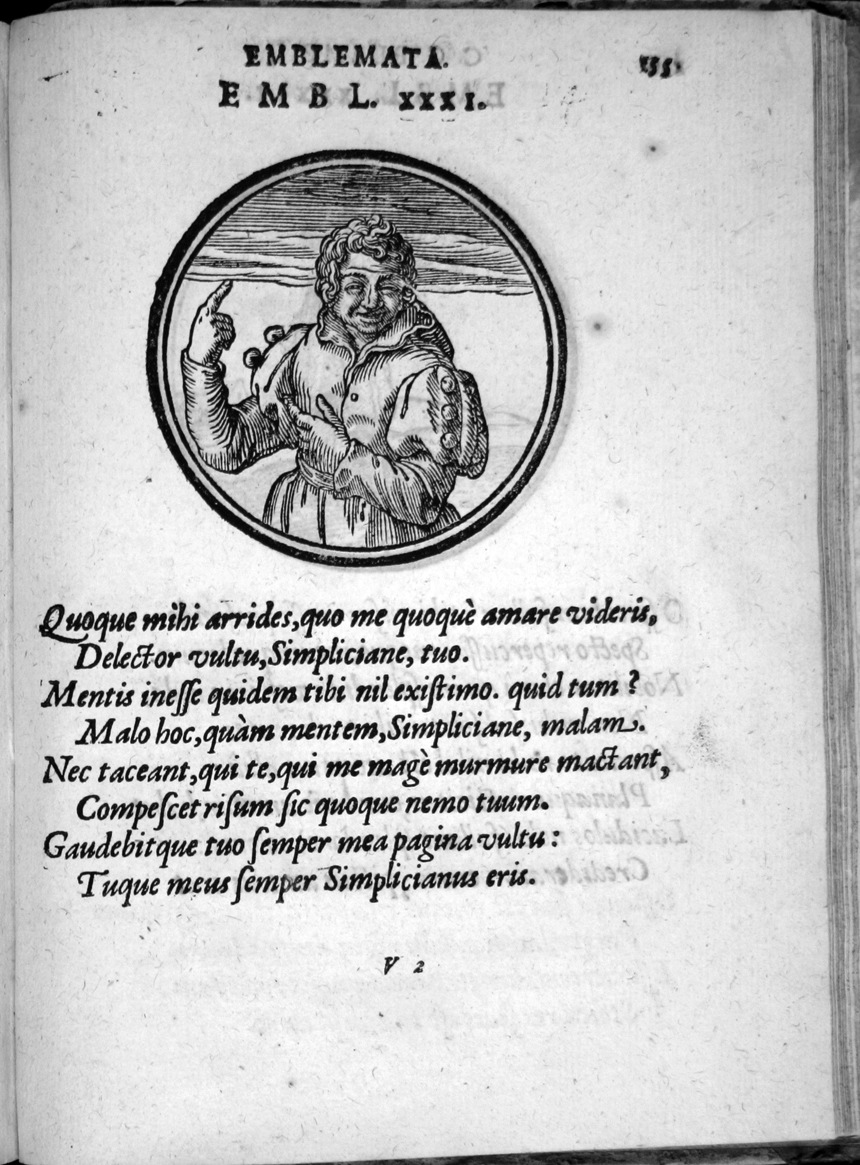 EMBLEMATA. 155.
EMBL. XXXI.
Quoque mihi arrides, quo me quoquè amare videris,
Delector vultu, Simpliciane, tuo.
Mentis inesse quidem tibi nil existimo. quid tum?
Malo hoc, quàm mentem, Simpliciane, malam.
Nec taceant, qui te, qui me magè murmure mactant,
Compescet risum sic quoque nemo tuum.
Gaudebitque tuo semper mea pagina vultu:
Tuque meus semper Simplicianus eris.
V 2